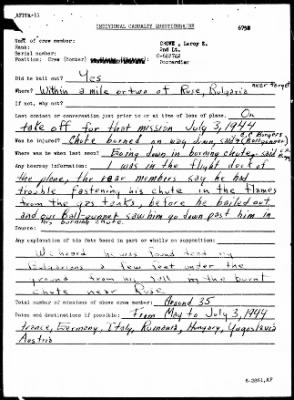 AFPPA-11
INDIVIDUAL CASUALTY QUESTIONNAIRE
Name of crew member:
Rank: 2nd Lt.
Serial number:
Position: Crew (Bomber) Bombardier
Did he bail out? Yes
Where? Within a mile or two of Ruse, Bulgaria near target
If not, why not?
Last contact or conversation just prior to or at time of loss of plane: On
take off for that mission July 3, 1944
Was he injured? Chute burned on way down, said
Where was he when last seen? Going down in burning chute, said
Any hearsay information: I was in the flight deck of
the plane, the rear members say he had
trouble fastening his chute in the flames
from the gas tanks, before he bailed out
and our Ball-gunner saw him go down past him in
his burning chute.
Source:
Any explanation of his fate based in part or wholly on supposition:
We heard he was found dead by
Bulgarians a few feet under the
ground from his fall in the burnt
chute near Ruse
Total number of missions of above crew member: Around 35
Dates and destinations if possible: From May to July 3, 1944
France, Germany, Italy, Rumania, Hungary, Yugoslavia
Austria